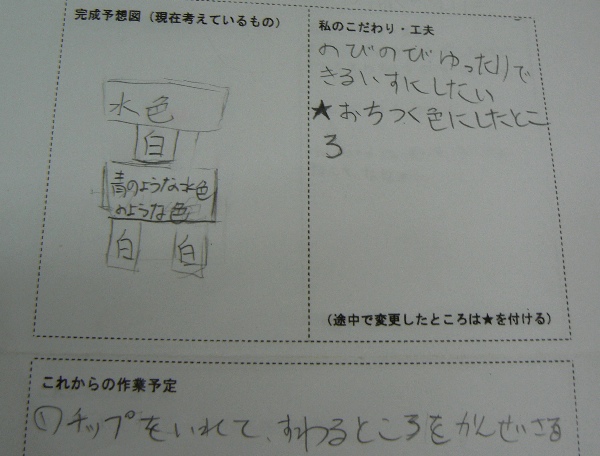 完成予想図（現在考えているもの）
水色
白
青のような水色
のような色
白 白
私のこだわり・工夫
のびのびゆったりで
きるいすにしたい
★おちつく色にしたとこ
ろ
（途中で変更したところは★を付ける）
これからの作業予定
①チップをいれて、すわるところをかんせいさる